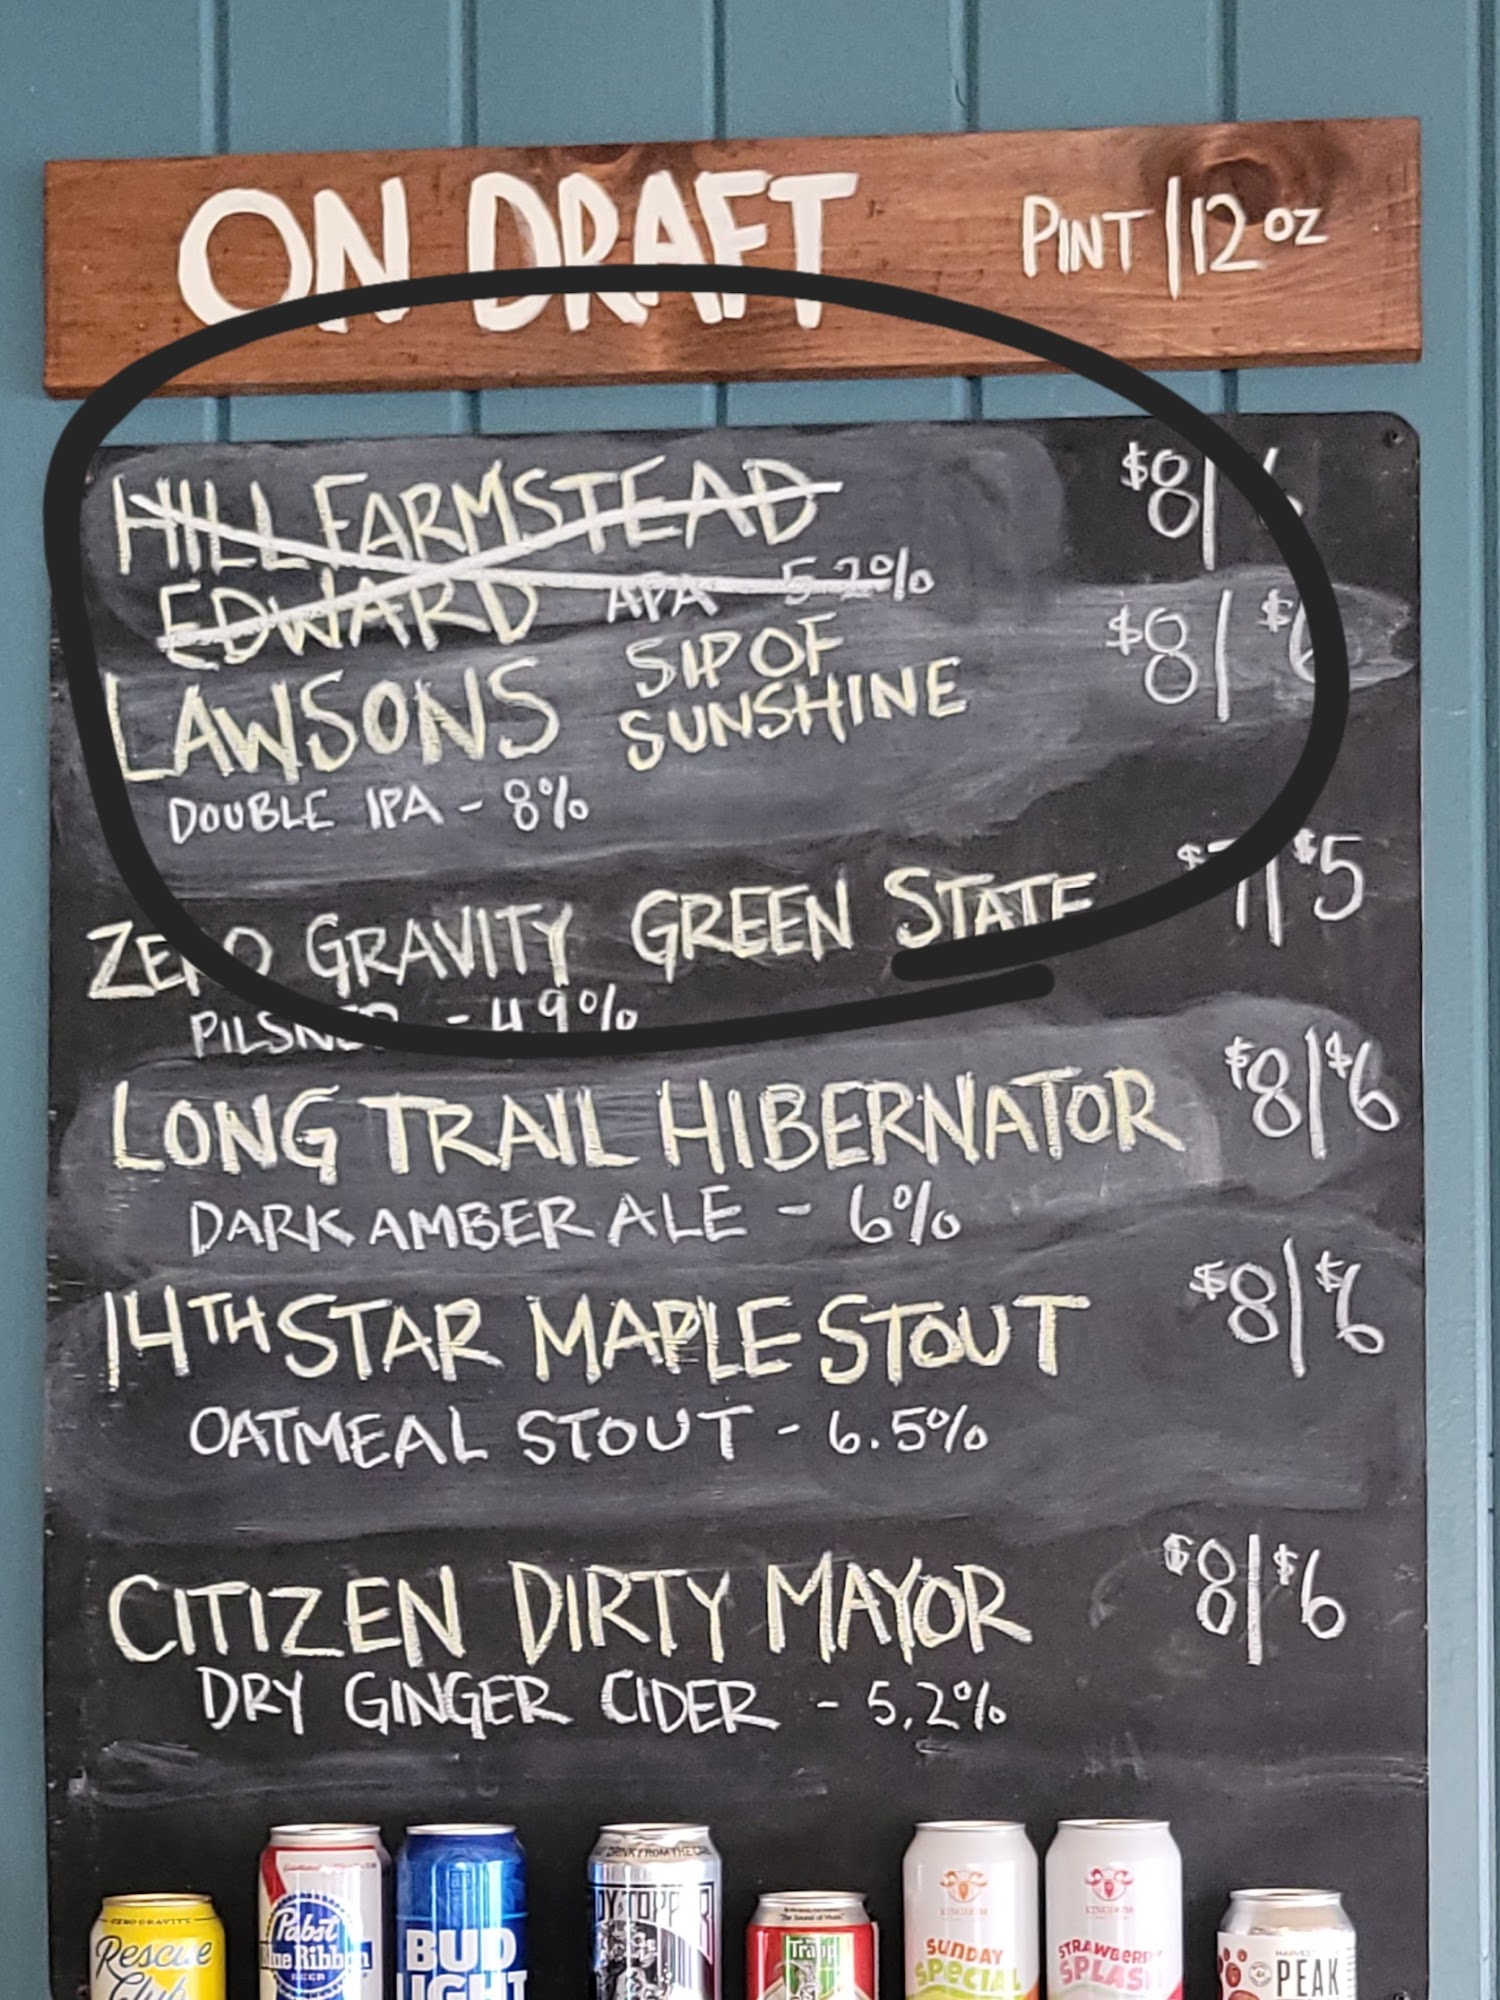 ON DRAFT PINT | 12 OZ
HILL FARMSTEAD $8 |
EDWARD APA 5.2%
LAWSONS SIP OF SUNSHINE $8 | $6
DOUBLE IPA - 8%
ZERO GRAVITY GREEN STATE $7 | $5
PILSNER - 4.9%
LONG TRAIL HIBERNATOR $8 | $6
DARK AMBER ALE - 6%
14TH STAR MAPLE STOUT $8 | $6
OATMEAL STOUT - 6.5%
CITIZEN DIRTY MAYOR $8 | $6
DRY GINGER CIDER - 5.2%
ZERO GRAVITY
Rescue
Club
Pabst
Blue Ribbon
BEER
BUD
LIGHT
DRINK FROM THE CAN
DY TOPPER
"The Sound of Music"
Trapp
KINGDOM
SUNDAY
SPECIAL
KINGDOM
STRAWBERRY
SPLASH
HARVEST
PEAK